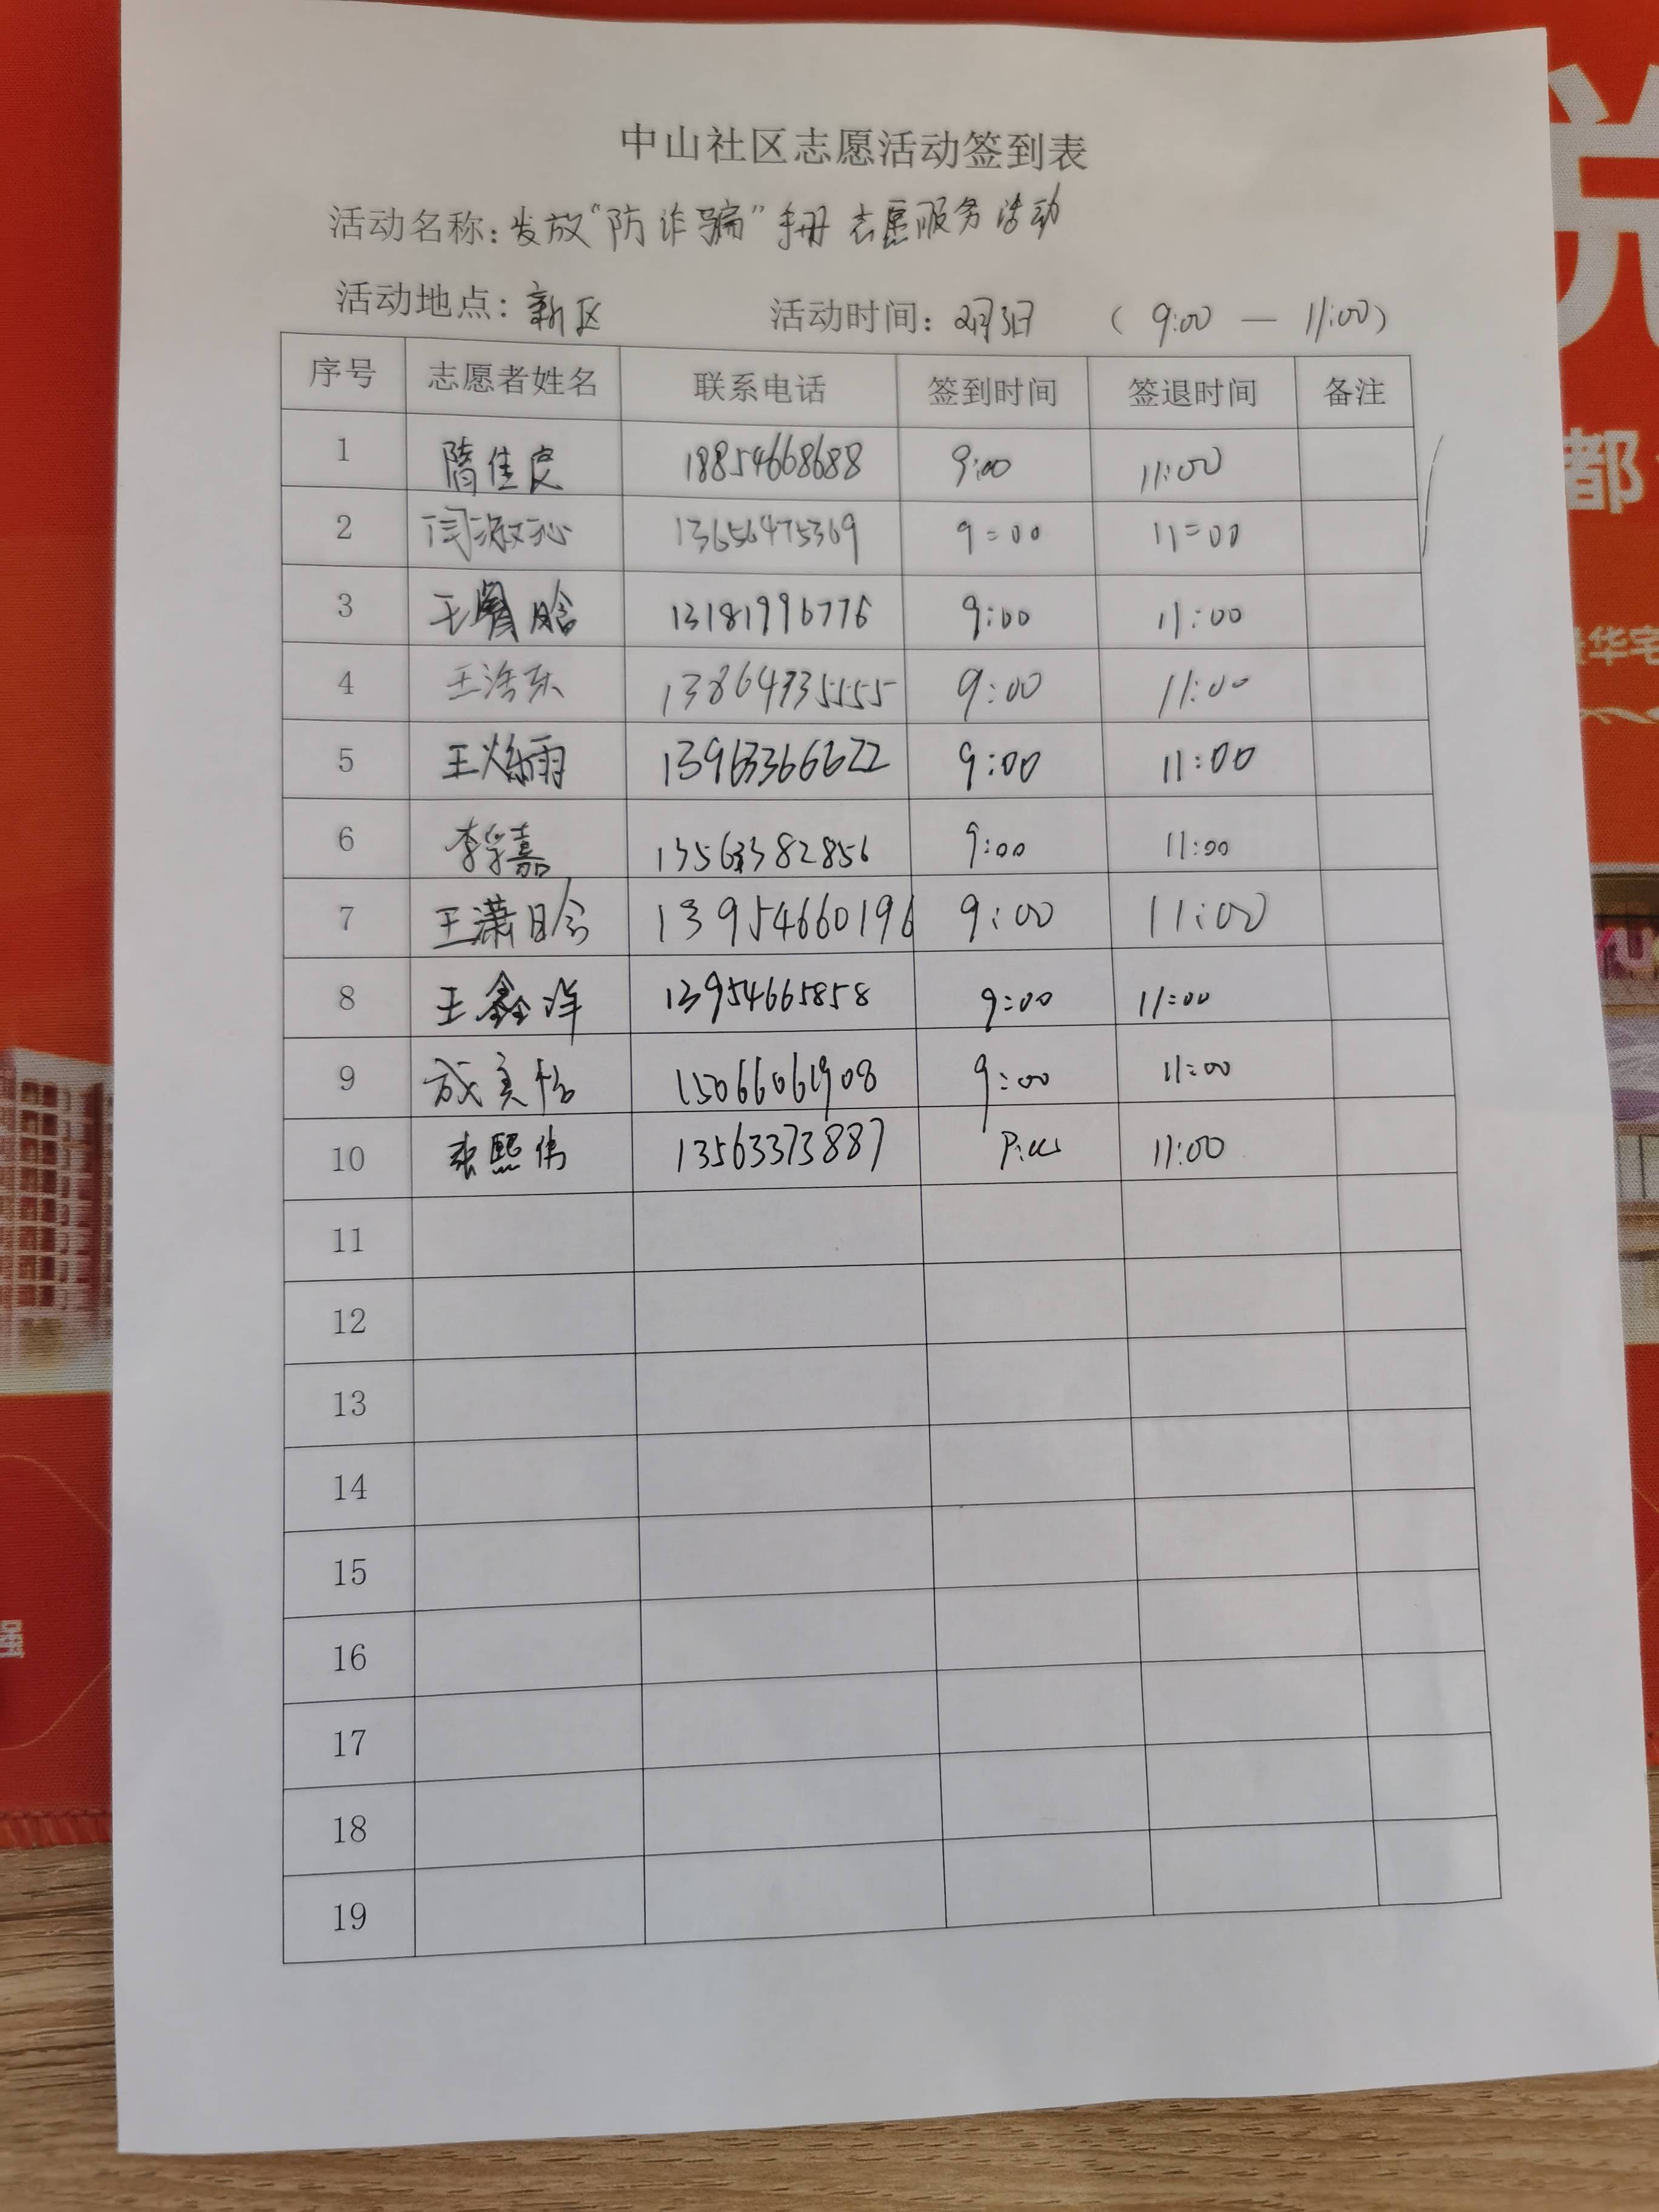 中山社区志愿活动签到表
活动名称：发放“防诈骗”手册志愿服务活动
活动地点：新区 活动时间：2月3日 （9:00 — 11:00）
序号 志愿者姓名 联系电话 签到时间 签退时间 备注
1 隋佳良 18854668688 9:00 11:00
2 闫淑沁 13656475369 9:00 11:00
3 王 晗 13181996776 9:00 11:00
4 王浩东 13864735555 9:00 11:00
5 王焕雨 13963366622 9:00 11:00
6 李嘉 13563382856 9:00 11:00
7 王潇晗 13954660196 9:00 11:00
8 王鑫洋 13954665858 9:00 11:00
9 成美怡 15066061908 9:00 11:00
10 张熙伟 13563373887 9:00 11:00
11
12
13
14
15
16
17
18
19
都
华宅
强